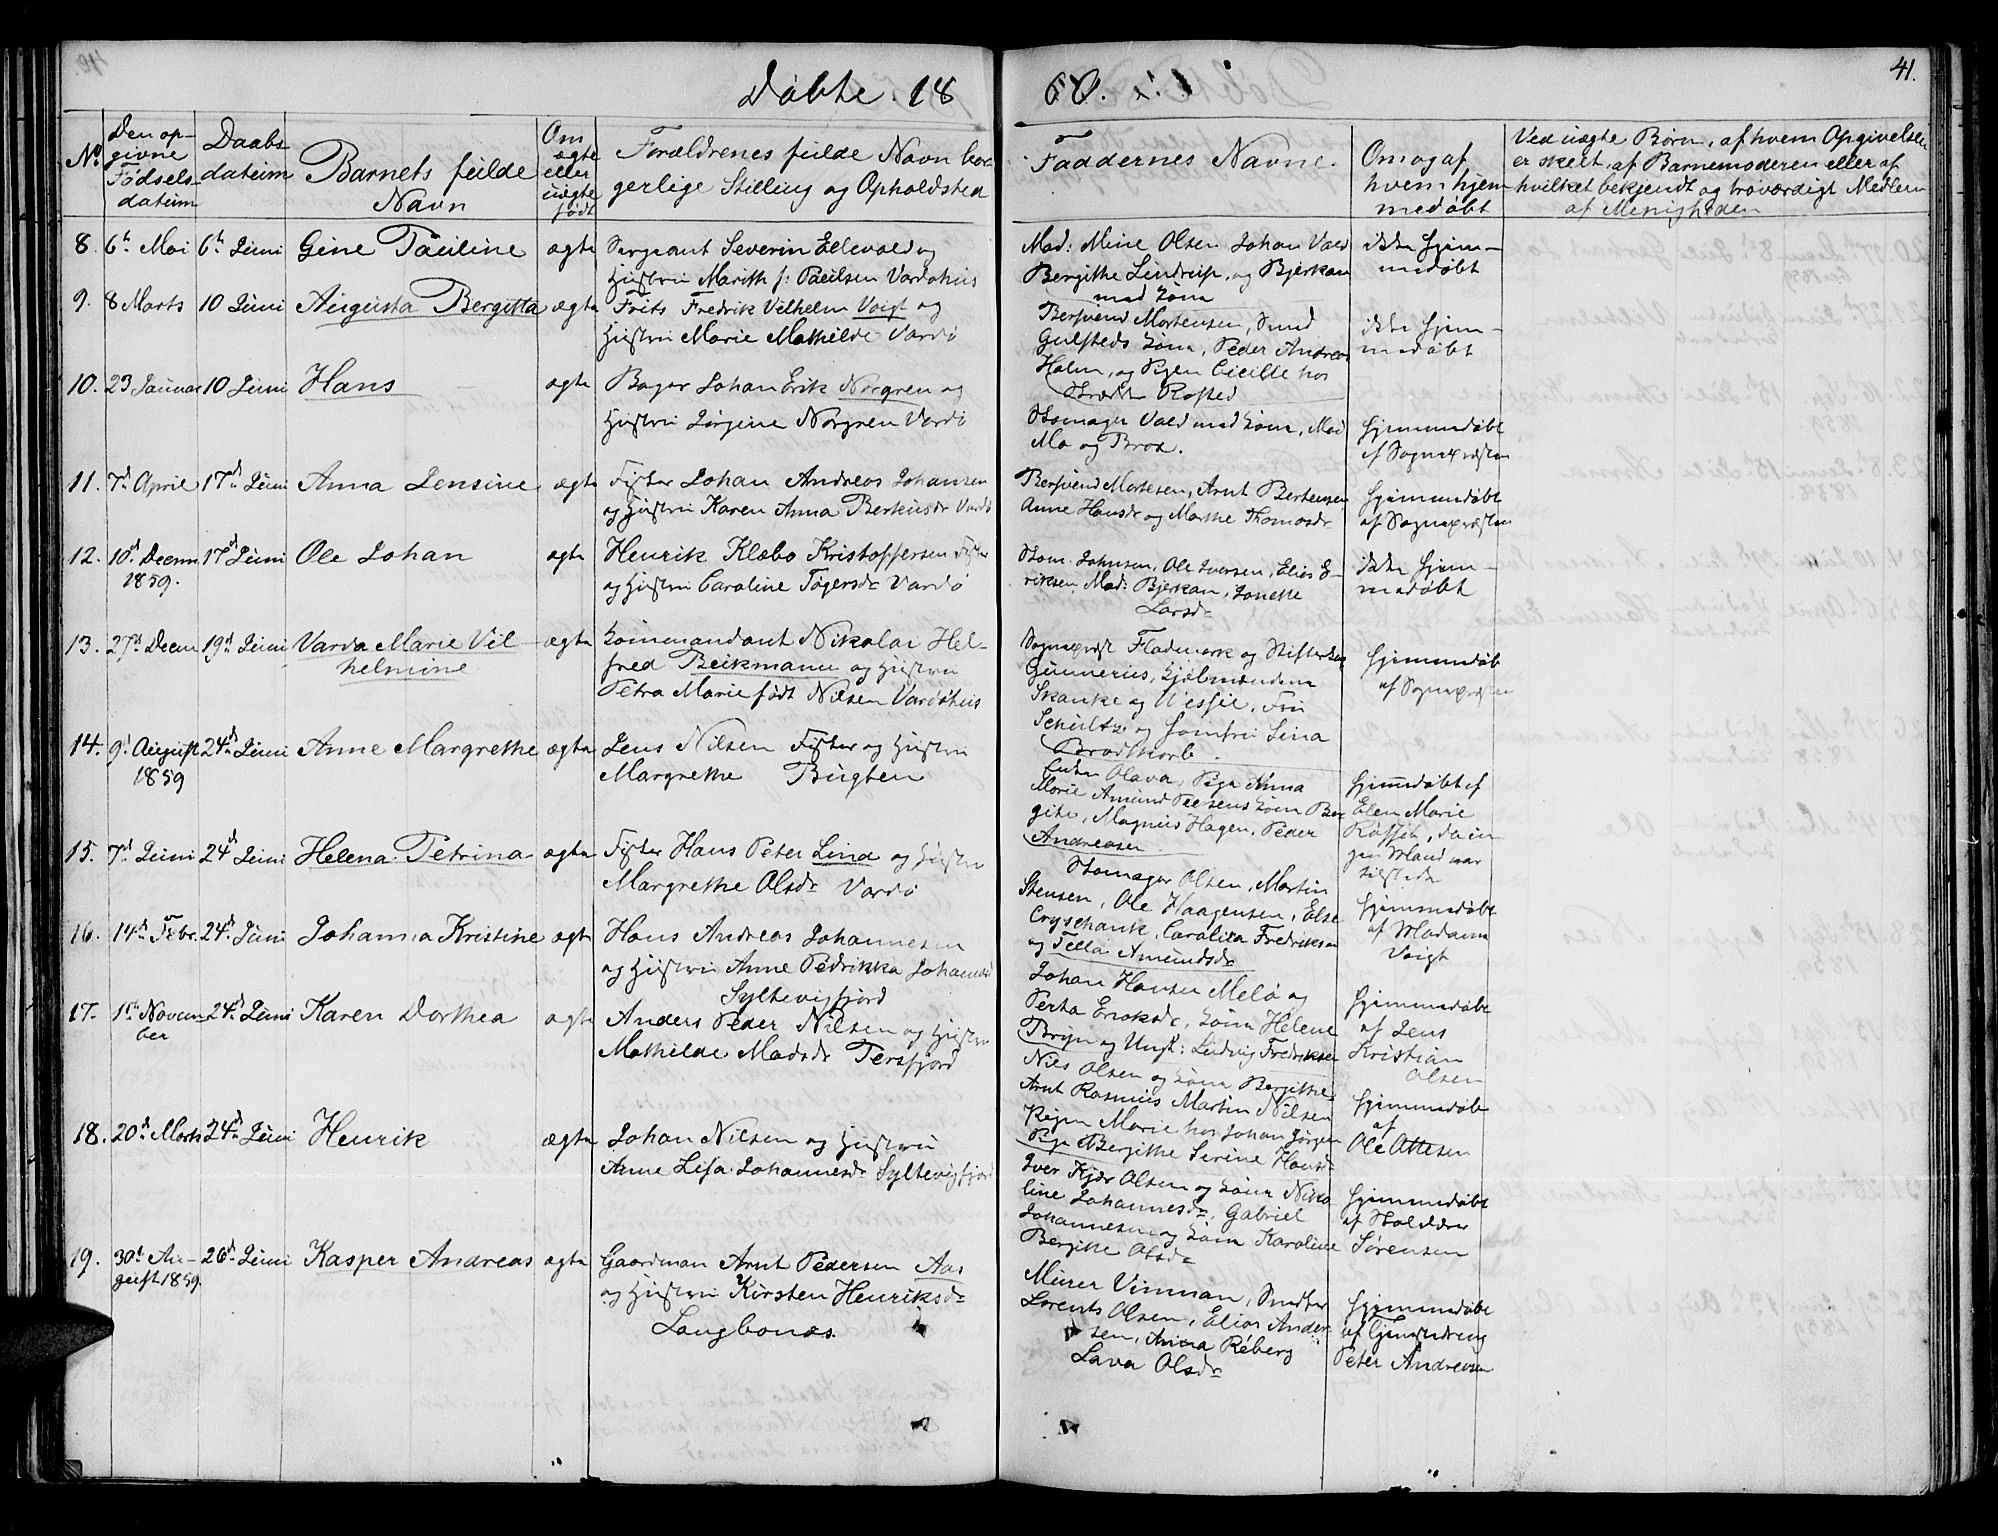 Døbte. 18
60.
41.
No
Den op-
givne
Fødsels-
datum
Daabs
datum
Barnets fulde
Navn
Om
ægte
eller
uægte
født
Forældrenes fulde Navn bor
gerlige Stilling og Opholdsted
Faddernes Navne.
Om og af
hvem hjem
medøbt
Ved uægte Børn, af hvem Opgivelsen
er skeet, af Barnemoderen eller af
hvilket bekjendt og troværdigt Medlem
af Menigheden
8. 6te Mai 6te Juni Gine Pauline ægte
Sergeant Severin Ellevold og
Hustru Marith f: Paulsen Vardøhus
Mad: Mine Olsen Johan Vald
Bergithe Lindrup, og Bjerkan
med Kone
ikke hjem-
medøbt
9. 8 Marts 10 Juni Augusta Bergitta ægte
Frits Fredrik Velhelm Voigt og
Hustru Marie Mathilde Vardø
Bersvend Mortensen, Smed
Gulsteds Kone, Peder Andreas
Holm, og Pigen Cicille hos
Rofsted
ikke hjem-
medøbt
10. 23 Januar 10 Juni Hans ægte
Bager Johan Erik Norgren og
Hustru Jørgine Norgren Vardø
Skomager Vald med Kone, Mad
Mo og Brox.
hjemmedøbt
af Sognepræsten
11. 7de April 17de Juni Anna Jensine ægte
Fisker Johan Andreas Johansen
og Hustru Karen Anna Berkusdr Vardø
Bersvend Mortesen, Arnt Bertensen
Anne Hansdr og Marthe Thomasdr
hjemmedøbt
af Sognepræsten
12. 10de Decem 17de Juni Ole Johan ægte
1859.
Henrik Klæbo Kristoffersen Fisker
og Hustru Caroline Tøgersdr Vardø
Skom. Johnsen, Ole Iversen, Elias E-
riksen, Mad: Bjerkan, Jonette
Larsdr
ikke hjem-
medøbt
13. 27de Decem 19de Juni Varda Marie Vil
helmine
ægte
Kommandant Nikolai Hel-
fred Beikmann og Hustru
Petra Marie født Nilsen Vardøhus
Sognepræst Flademark og
Gunnerius, Kjøbmændene
Skanke og Wessel, Fru
Schultz og Jomfru Lina
Brodtkorb.
hjemmedøb
af Sognepræsten
14. 9de August 24de Juni Anne Margrethe ægte
1859
Jens Nilsen Fisker og Hustru
Margrethe Bugten
Enken Olava, Pige Anna
Marie Amund Pedersens Kone Ber
gite, Magnus Hagen, Peder
Andreasen.
hjemmedøbt af
Elen Marie
da in-
gen Mand var
tilstede
15. 7de Juni 24de Juni Helena Petrina ægte
Fisker Hans Peter Lind og Hustru
Margrethe Olsdr Vardø
Skomager Olsen, Martin
Stensen, Ole Haagensen, Else
Caralica Fredriksen
og Tella Amundsdr
hjemmedøbt
af Madame
Voigt
16. 14de Febr. 24de Juni Johanna Kristine ægte
Hans Andreas Johannesen
og Hustru Anne Pedrikka Johannesd
Syltevigfjord
Johan Hansen Melø og
Perta Eriksdr, Kone Helene
Bryn og Ungk: Ludvig Fredriksen
hjemmedøbt
af Jens
Kristian
Olsen
17. 1ste Novem- 24de Juni Karen Dorthea ægte
ber
Anders Peder Nilsen og Hustru
Mathilde Madsdr Persfjord
Nils Olsen og Kone Bergithe
Arnt Rasmus Martin Nilsen
Pigen Marie hos Johan Jørgen
Pige Bergithe Serine Hansdr
hjemmedøbt
af
Ole Ottesen
18. 20de Marts 24de Juni Henrik ægte
Johan Nilsen og Hustru
Anne Lisa Johannesdr Syltevigfjord
Iver Kjær Olsen og Kone Niko
line Johannesdr, Gabriel
Johannesen og Kone Karoline
Bergithe Olsdr
hjemmedøbt
af Skolelærer
Sørensen
19. 30te Au- 26de Juni Kasper Andreas ægte
gust 1859.
Gaardman Arnt Pedersen Aas
og Hustru Kirsten Henriksdr
Langbonæs.
Murer Vinman, Snedker
Lorents Olsen, Elias Ander
sen, Anna Reberg
Lava Olsdr
hjemmedøbt
af Tjenestdreng
Peter Andreasen